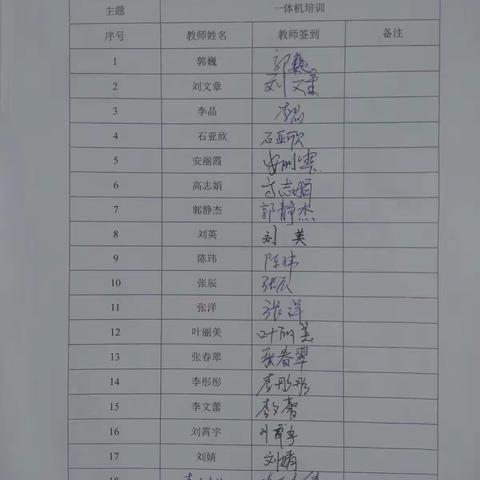 主题 一体机培训
序号 教师姓名 教师签到 备注
1 郭巍 郭巍
2 刘文章 刘文章
3 李晶 李晶
4 石亚欣 石亚欣
5 安丽霞 安丽霞
6 高志娟 高志娟
7 郭静杰 郭静杰
8 刘英 刘英
9 陈玮 陈玮
10 张辰 张辰
11 张洋 张洋
12 叶丽美 叶丽美
13 张春翠 张春翠
14 李彤彤 李彤彤
15 李文蕾 李文蕾
16 刘霄宇 刘霄宇
17 刘婧 刘婧
18